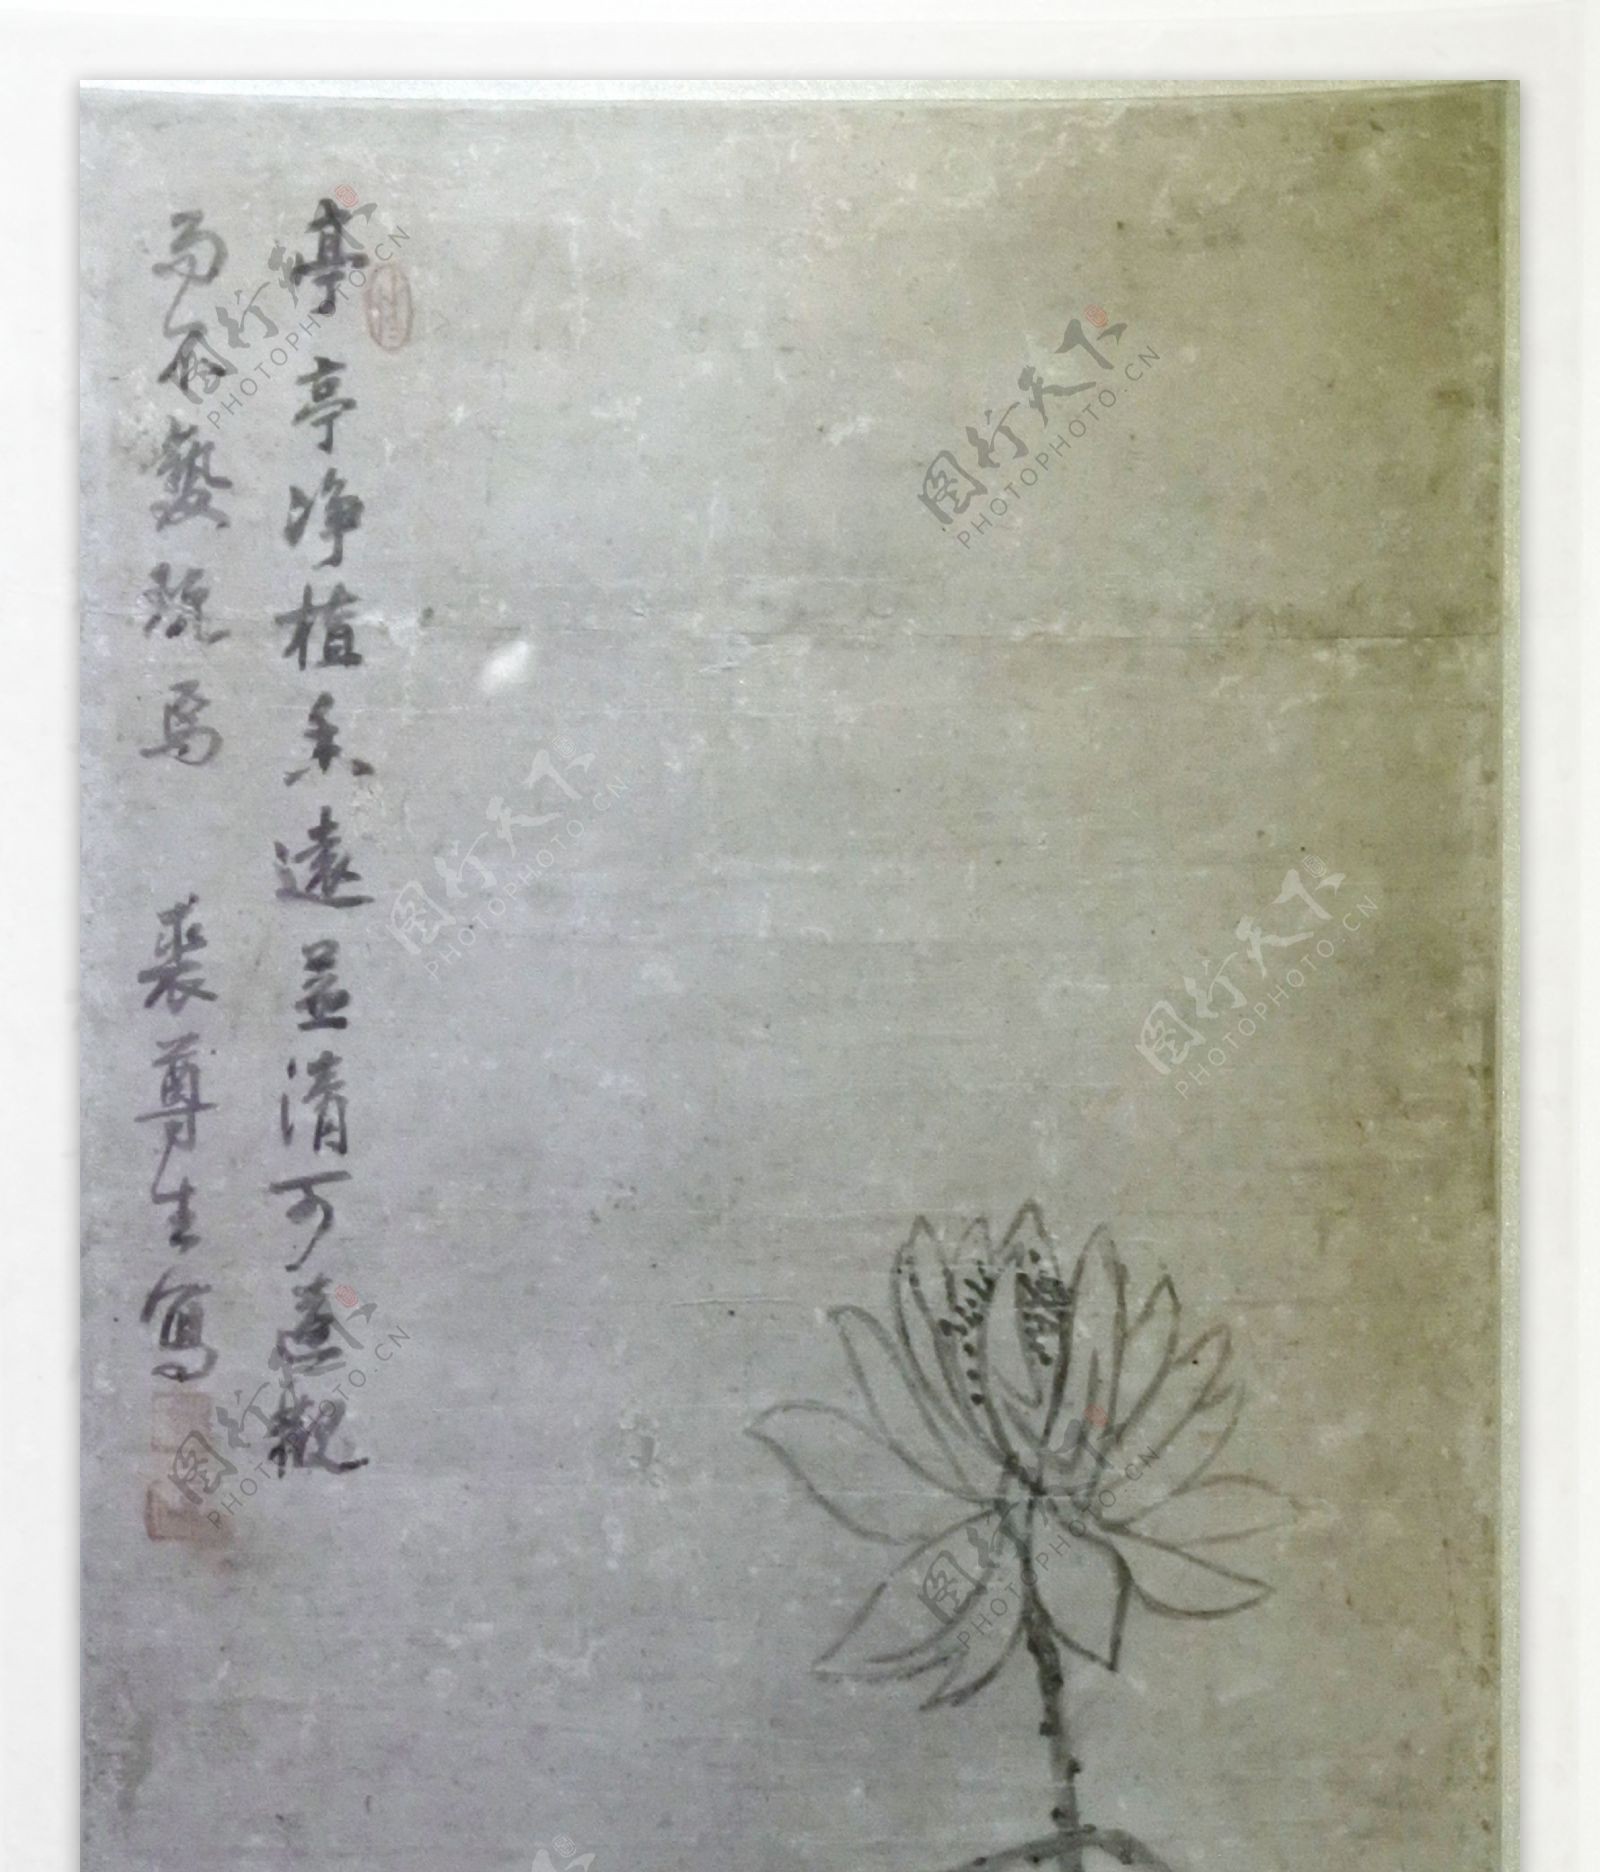 亭亭净植香遠益清可遠觀
而不褻玩焉 裘尊生寫
图行天下
PHOTOPHOTO.CN
图行天下
PHOTOPHOTO.CN
图行天下
PHOTOPHOTO.CN
图行天下
PHOTOPHOTO.CN
图行天下
PHOTOPHOTO.CN
图行天下
PHOTOPHOTO.CN